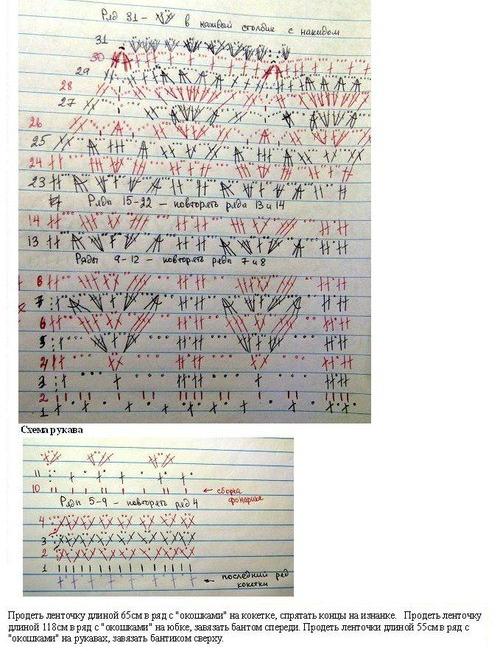 Ряд 31 - в каждый столбик с накидом
31
30
29
28
27
26
25
24
23
Ряды 15-22 — повторять ряда 13 и 14
14
13
Ряды 9-12 — повторять ряда 7 и 8
8
7
6
5
4
3
2
1
Схема рукава
11
10 ← сборка фонарика
Ряды 5-9 - повторять ряд 4
4
3
2
1
← последний ряд кокетки
Продеть ленточку длиной 65см в ряд с "окошками" на кокетке, спрятать концы на изнанке. Продеть ленточку
длиной 118см в ряд с "окошками" на юбке, завязать бантом спереди. Продеть ленточки длиной 55см в ряд с
"окошками" на рукавах, завязать бантиком сверху.